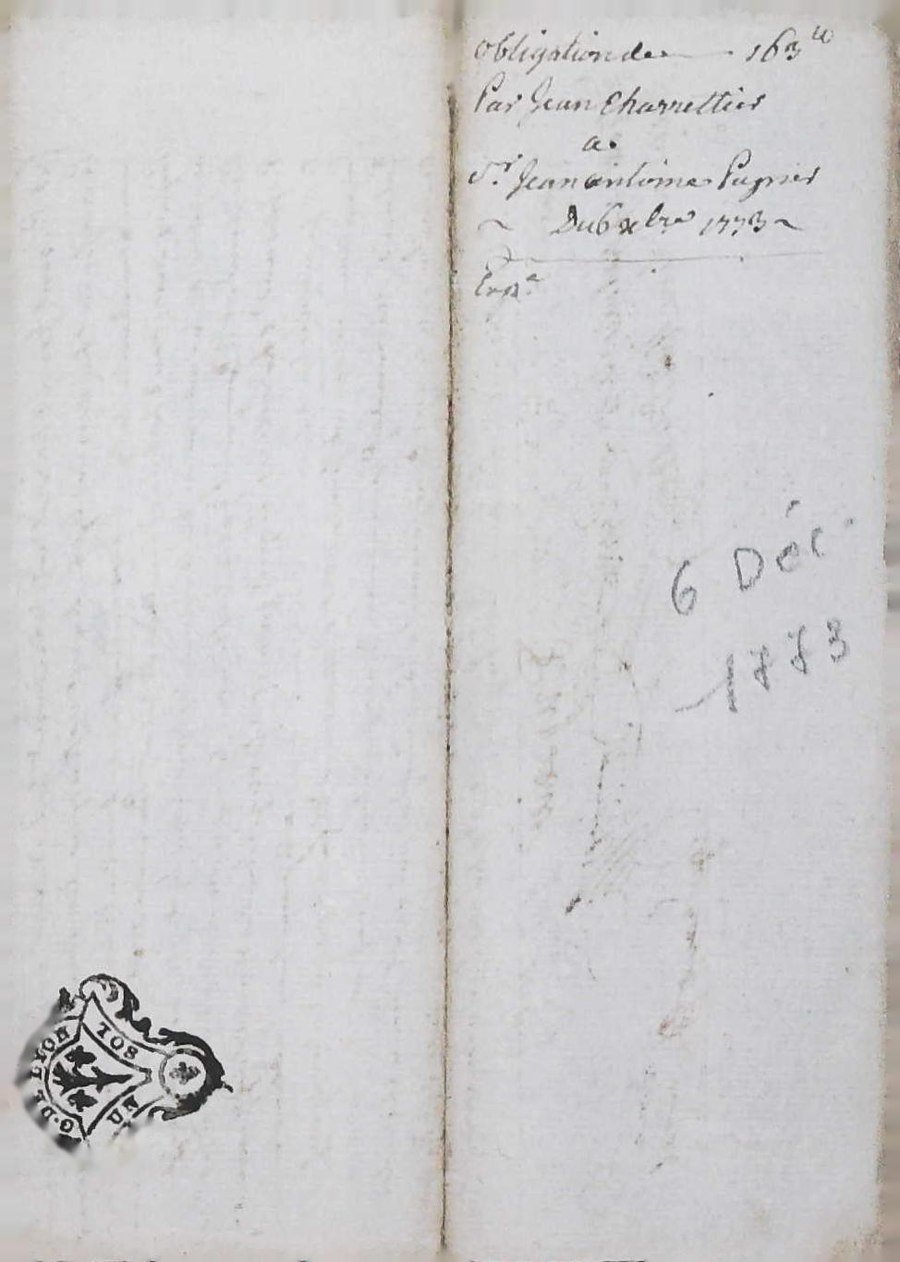 Obligation de 163ᵗᵗ
Par Jean Charrettier
a
Sr. Jean antoine Pugnier
Du 6 xbre 1773
Expe
6 Déc.
1773
G. DE LYON
SOL